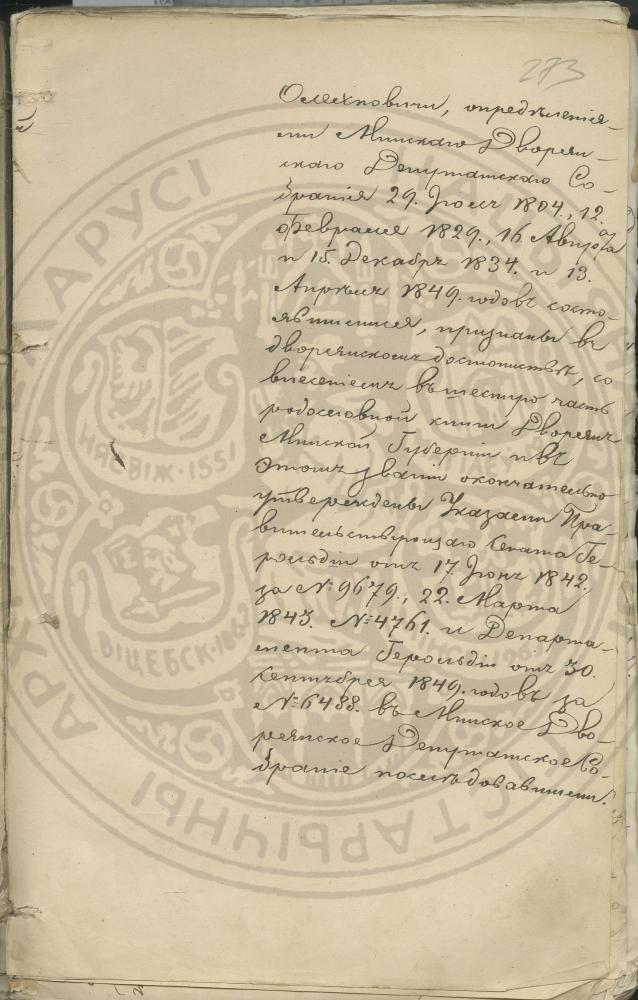 273
Олехновичи, опредѣленія-
ми Минскаго Дворян-
скаго Депутатскаго Со-
бранія 29. Іюля 1804., 12.
Февраля 1829., 16 Августа
и 15. Декабря 1834. и 13.
Апрѣля 1849. годовъ состо-
явшимися, признаны въ
дворянскомъ достоинствѣ, со
внесеніемъ въ шестую часть
родословной книги Дворянъ
Минской Губерніи и въ
этомъ званіи окончательно
утверждены Указами Пра-
вительствующаго Сената Ге-
рольдіи отъ 17. Іюня 1842.
за №: 9679., 22. Марта
1843. №: 4761. и Департа-
мента Герольдіи отъ 30.
Сентября 1849. годовъ за
№: 6488. въ Минское Дво-
рянское Депутатское Со-
браніе послѣдовавшими.
АРУСІ
НЯСВІЖ · 1551
ВІЦЕБСК · 1597
СТАРЫЧНЫ